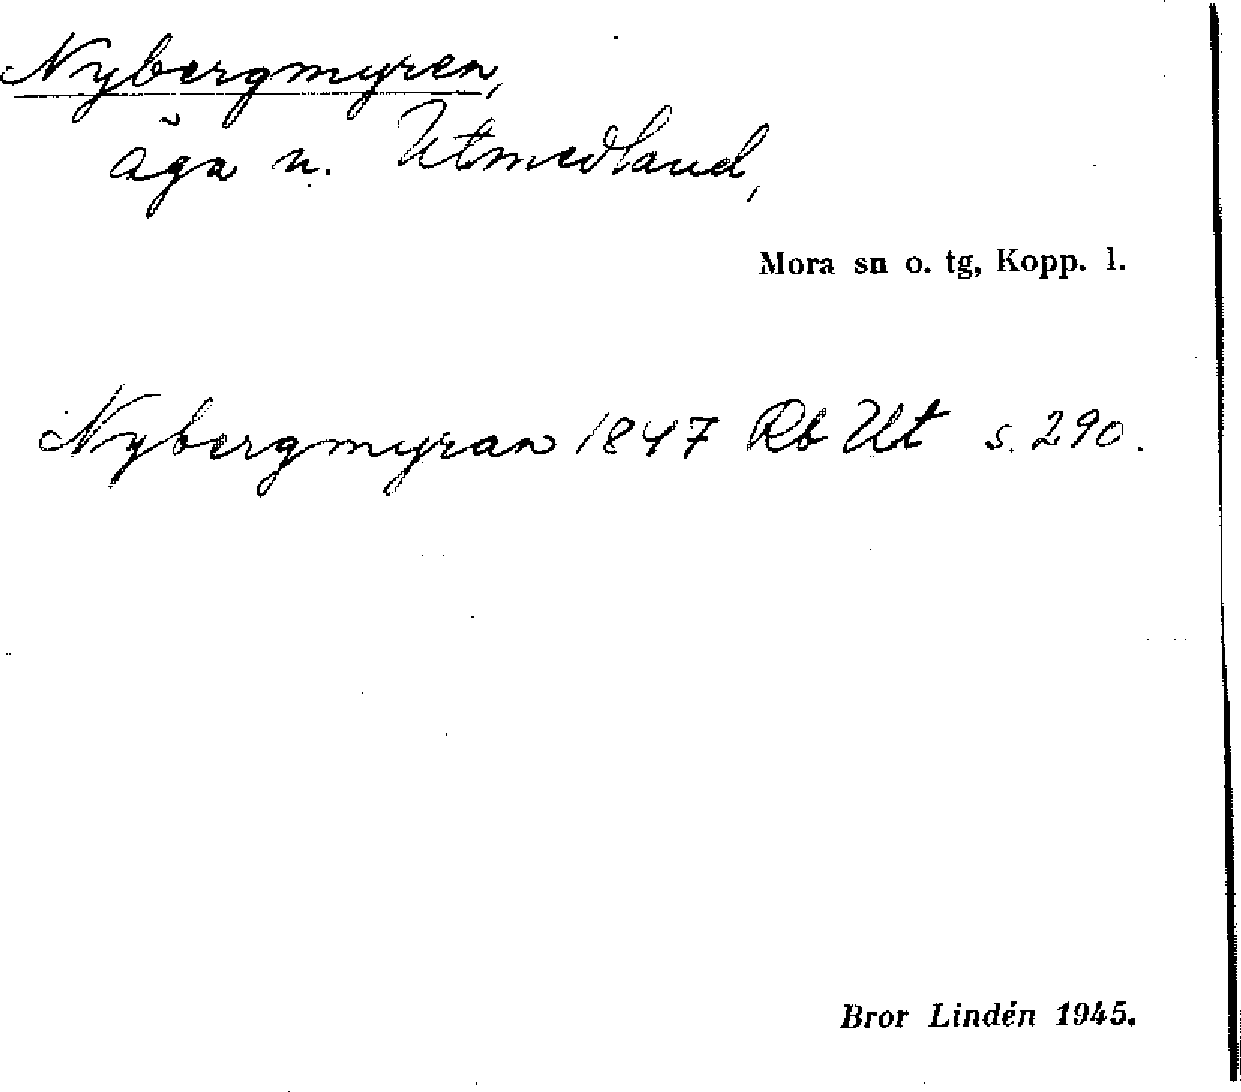 Nybergmyren,
äga u. Utmedland,
Mora sn o. tg, Kopp. l.
Nybergmyran 1847 Rb Ut s. 290.
Bror Lindén 1945.